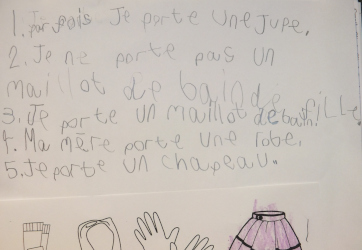 1. Parfois Je porte une jupe.
2. Je ne porte pas un
maillot de bain de fille
3. Je porte un maillot de bain.
4. Ma mère porte une robe.
5. Je porte un chapeau.